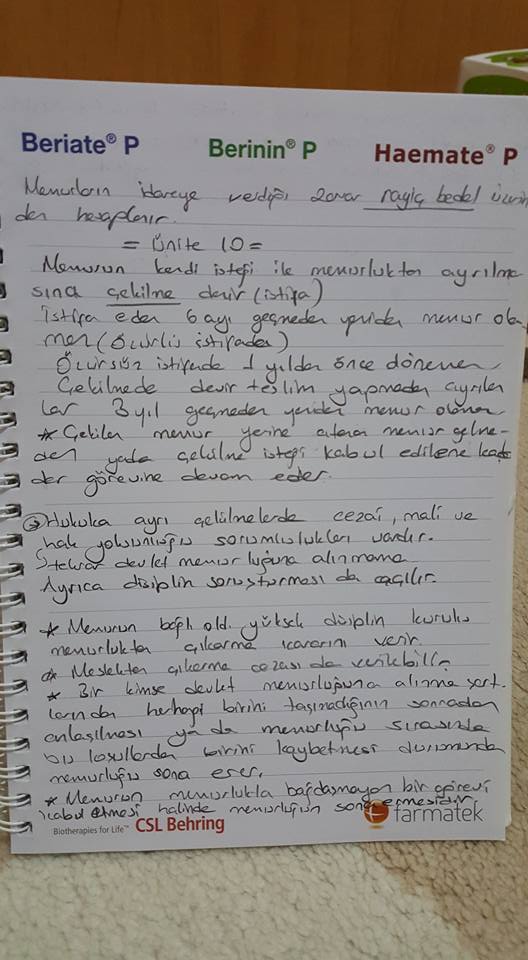 Beriate® P Berinin® P Haemate® P
Memurların idareye verdiği zarar rayiç bedel üzerin
den hesaplanır.
= Ünite 10 =
Memurun kendi isteği ile memurluktan ayrılma
sına çekilme denir (istifa)
İstifa eden 6 ayı geçmeden yeniden memur ola
maz (Özürlü istifadan)
Özürsüz istifande 1 yıldan önce dönemen
Çekilmede devir teslim yapmadan ayrılan
lar 3 yıl geçmeden yeniden memur olamaz
* Çekilen memur yerine atanan memur gelme-
den yada çekilme isteği kabul edilene kada
der görevine devam eder.
Hukuka ayrı çekilmelerde cezai, mali ve
hak yoksunluğu sorumlulukları vardır.
Tekrar devlet memurluğuna alınmama
Ayrıca disiplin soruşturması da açılır.
* Memurun bağlı old. yüksek disiplin kurulu
memurluktan çıkarma kararını verir.
* Meslekten çıkarma cezası da verilebilir
* Bir kimse devlet memurluğuna alınma şart-
larından herhagi birini taşımadığının sonradan
anlaşılması ya da memurluğu sırasında
bu koşullardan birini kaybetmesi durumunda
memurluğu sona erer.
* Memurun memurlukla bağdaşmayan bir görevi
kabul etmesi halinde memurluğun sona ermesidir
Biotherapies for Life™ CSL Behring farmatek